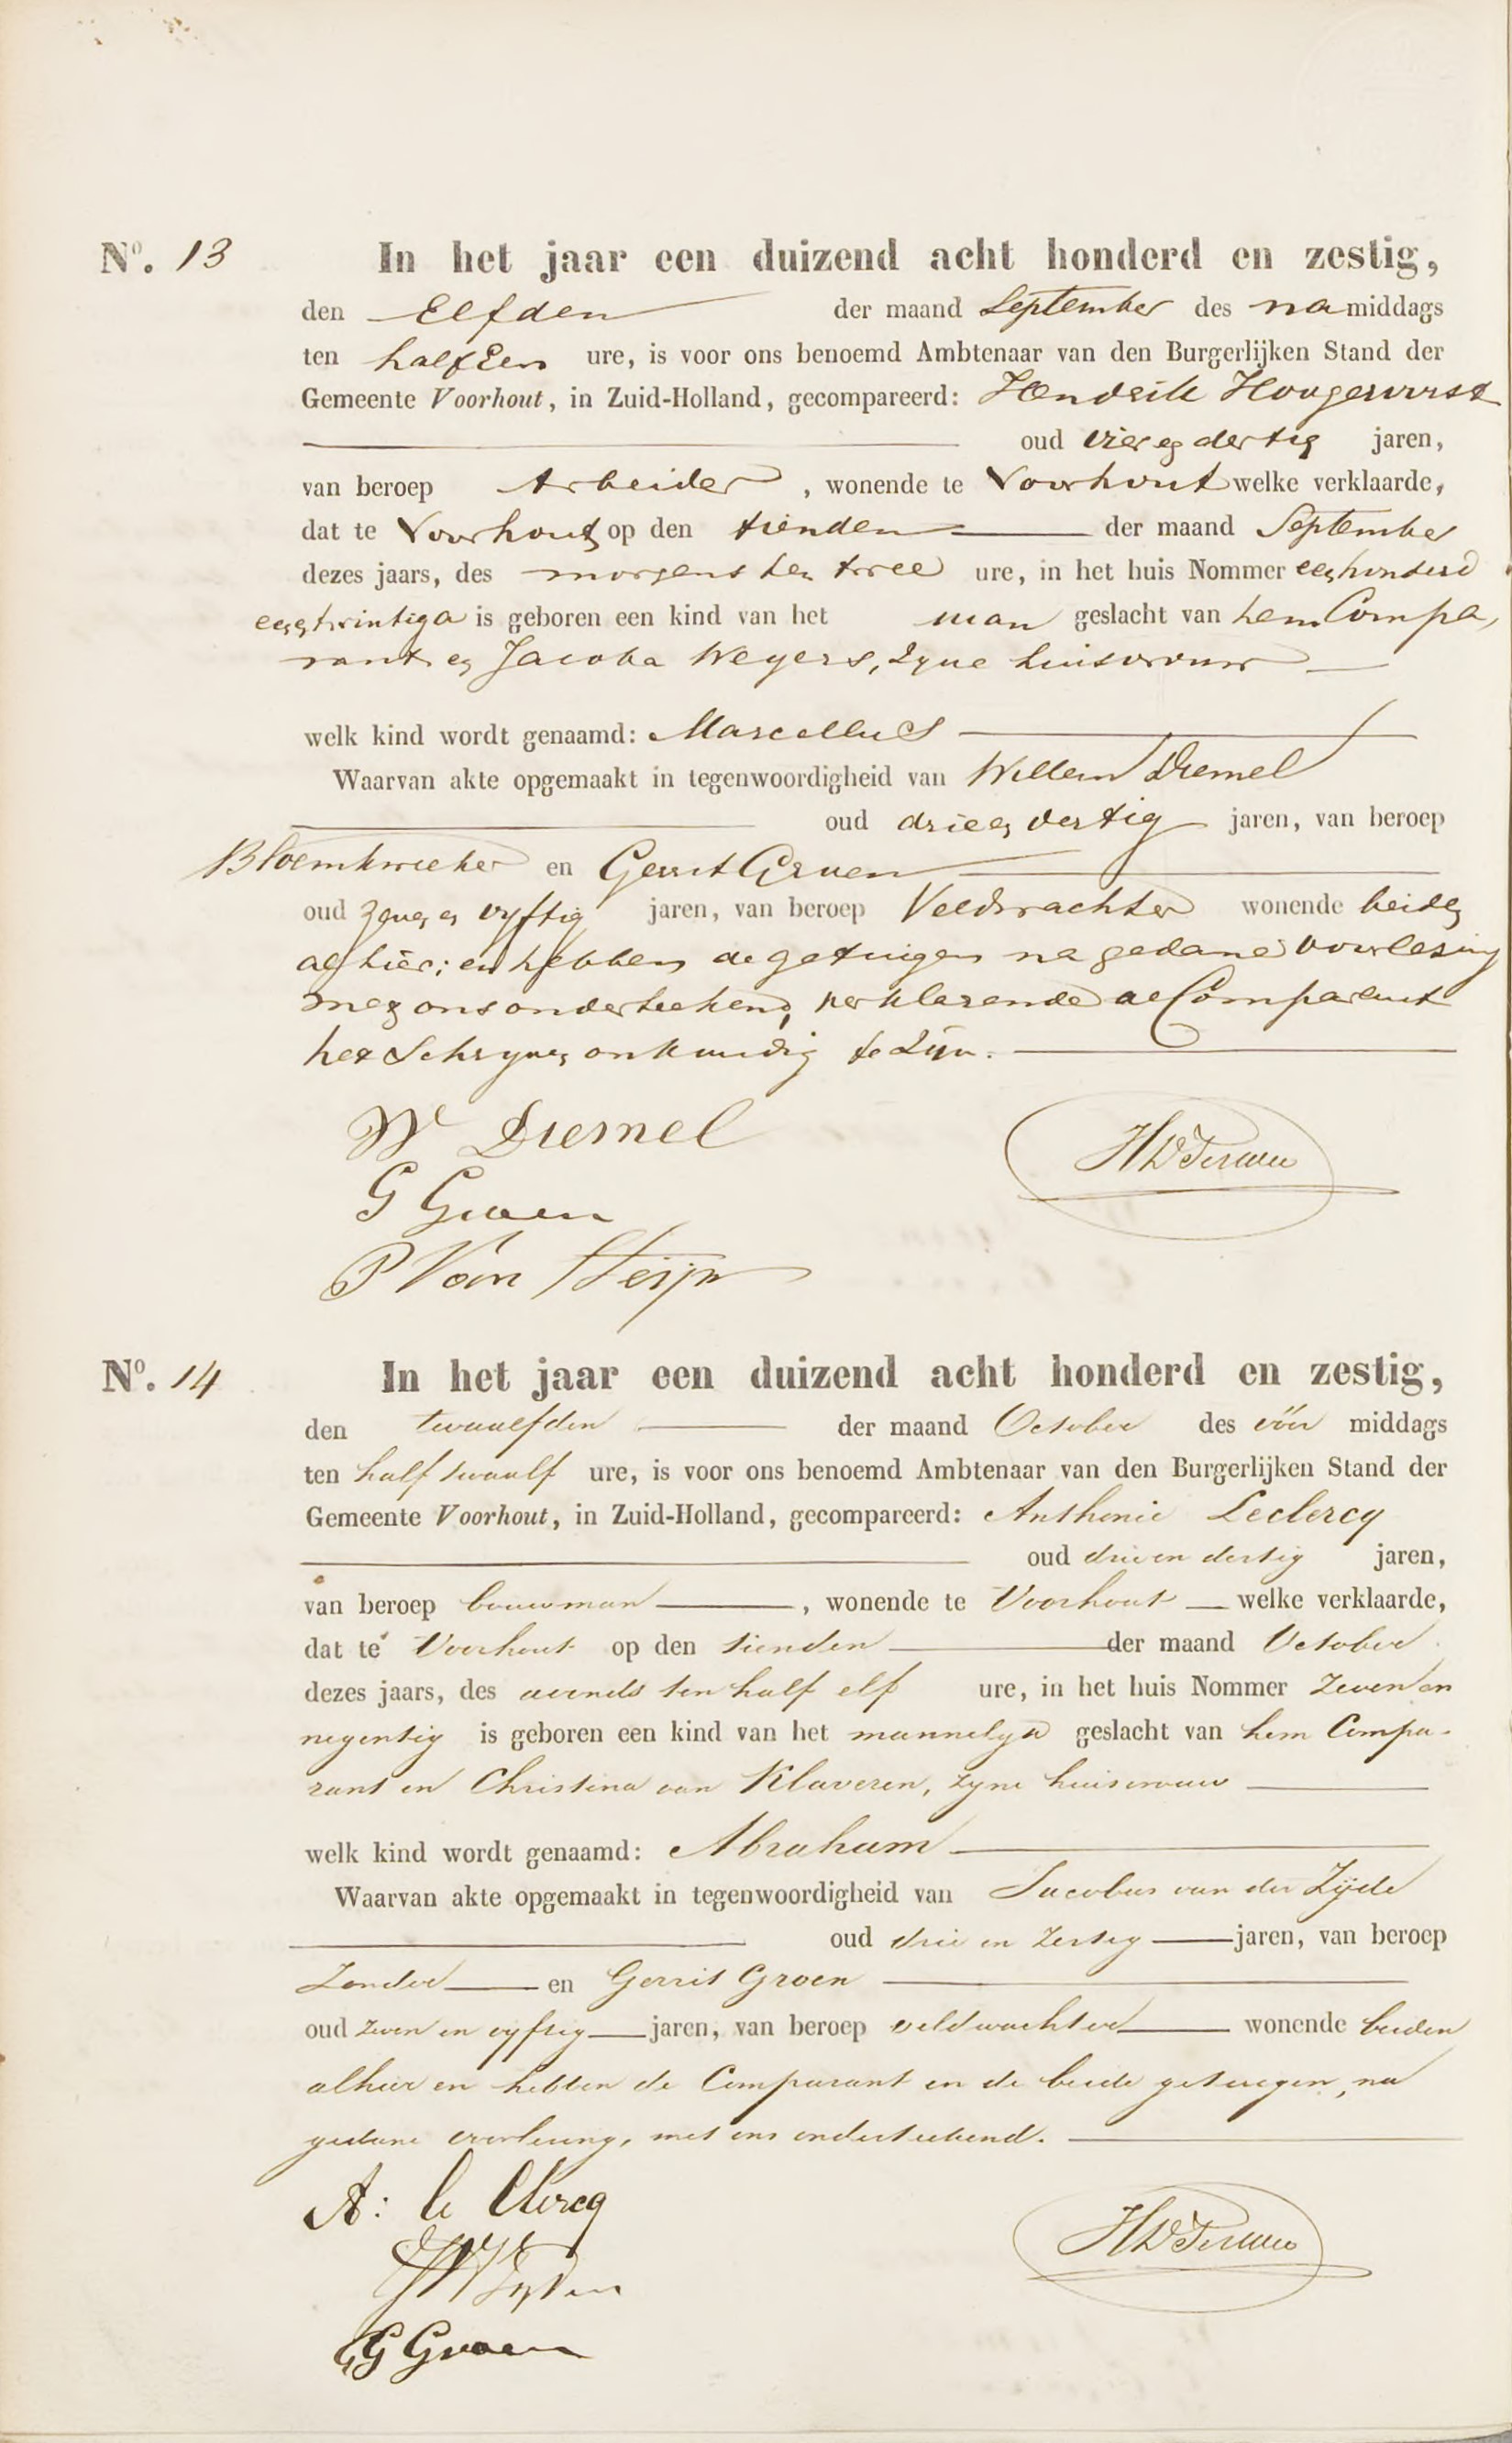 Nº. 13 In het jaar een duizend acht honderd en zestig,
den Elfden der maand September des namiddags
ten half Een ure, is voor ons benoemd Ambtenaar van den Burgerlijken Stand der
Gemeente Voorhout, in Zuid-Holland, gecompareerd: Hendrik Hoogervorst
oud vier en dertig jaren,
van beroep Arbeider, wonende te Voorhout welke verklaarde,
dat te Voorhout op den tienden der maand September
dezes jaars, des morgens ten twee ure, in het huis Nommer een honderd
een en twintig a is geboren een kind van het man geslacht van hem Compa,
rant en Jacoba Weyers, zyne huisvrouw
welk kind wordt genaamd: Marcellus
Waarvan akte opgemaakt in tegenwoordigheid van Willem Diemel
oud drie en dertig jaren, van beroep
Bloemkweeker en Gerrit Groen
oud zeven en vyftig jaren, van beroep Veldwachter wonende beiden
alhier; en hebben de getuigen na gedane voorlezing
met ons onderteekend, verklarende de Comparant
het Schryven onkundig te zijn.
W Diemel
G Groen
P Van Steijn
Nº. 14 In het jaar een duizend acht honderd en zestig,
den twaalfden der maand October des vóór middags
ten half twaalf ure, is voor ons benoemd Ambtenaar van den Burgerlijken Stand der
Gemeente Voorhout, in Zuid-Holland, gecompareerd: Anthonie Leclercq
oud drie en dertig jaren,
van beroep bouwman, wonende te Voorhout welke verklaarde,
dat te Voorhout op den tienden der maand October
dezes jaars, des avonds ten half elf ure, in het huis Nommer zeven en
negentig is geboren een kind van het mannelyk geslacht van hem Compa-
rant en Christina van Klaveren, zyne huisvrouw
welk kind wordt genaamd: Abraham
Waarvan akte opgemaakt in tegenwoordigheid van Jacobus van der Zijde
oud drie en zestig jaren, van beroep
Zonder en Gerrit Groen
oud zeven en vyftig jaren, van beroep veldwachter wonende beiden
alhier en hebben de Comparant en de beide getuigen, na
gedane voorlezing, met ons onderteekend.
A: le Clercq
G Groen